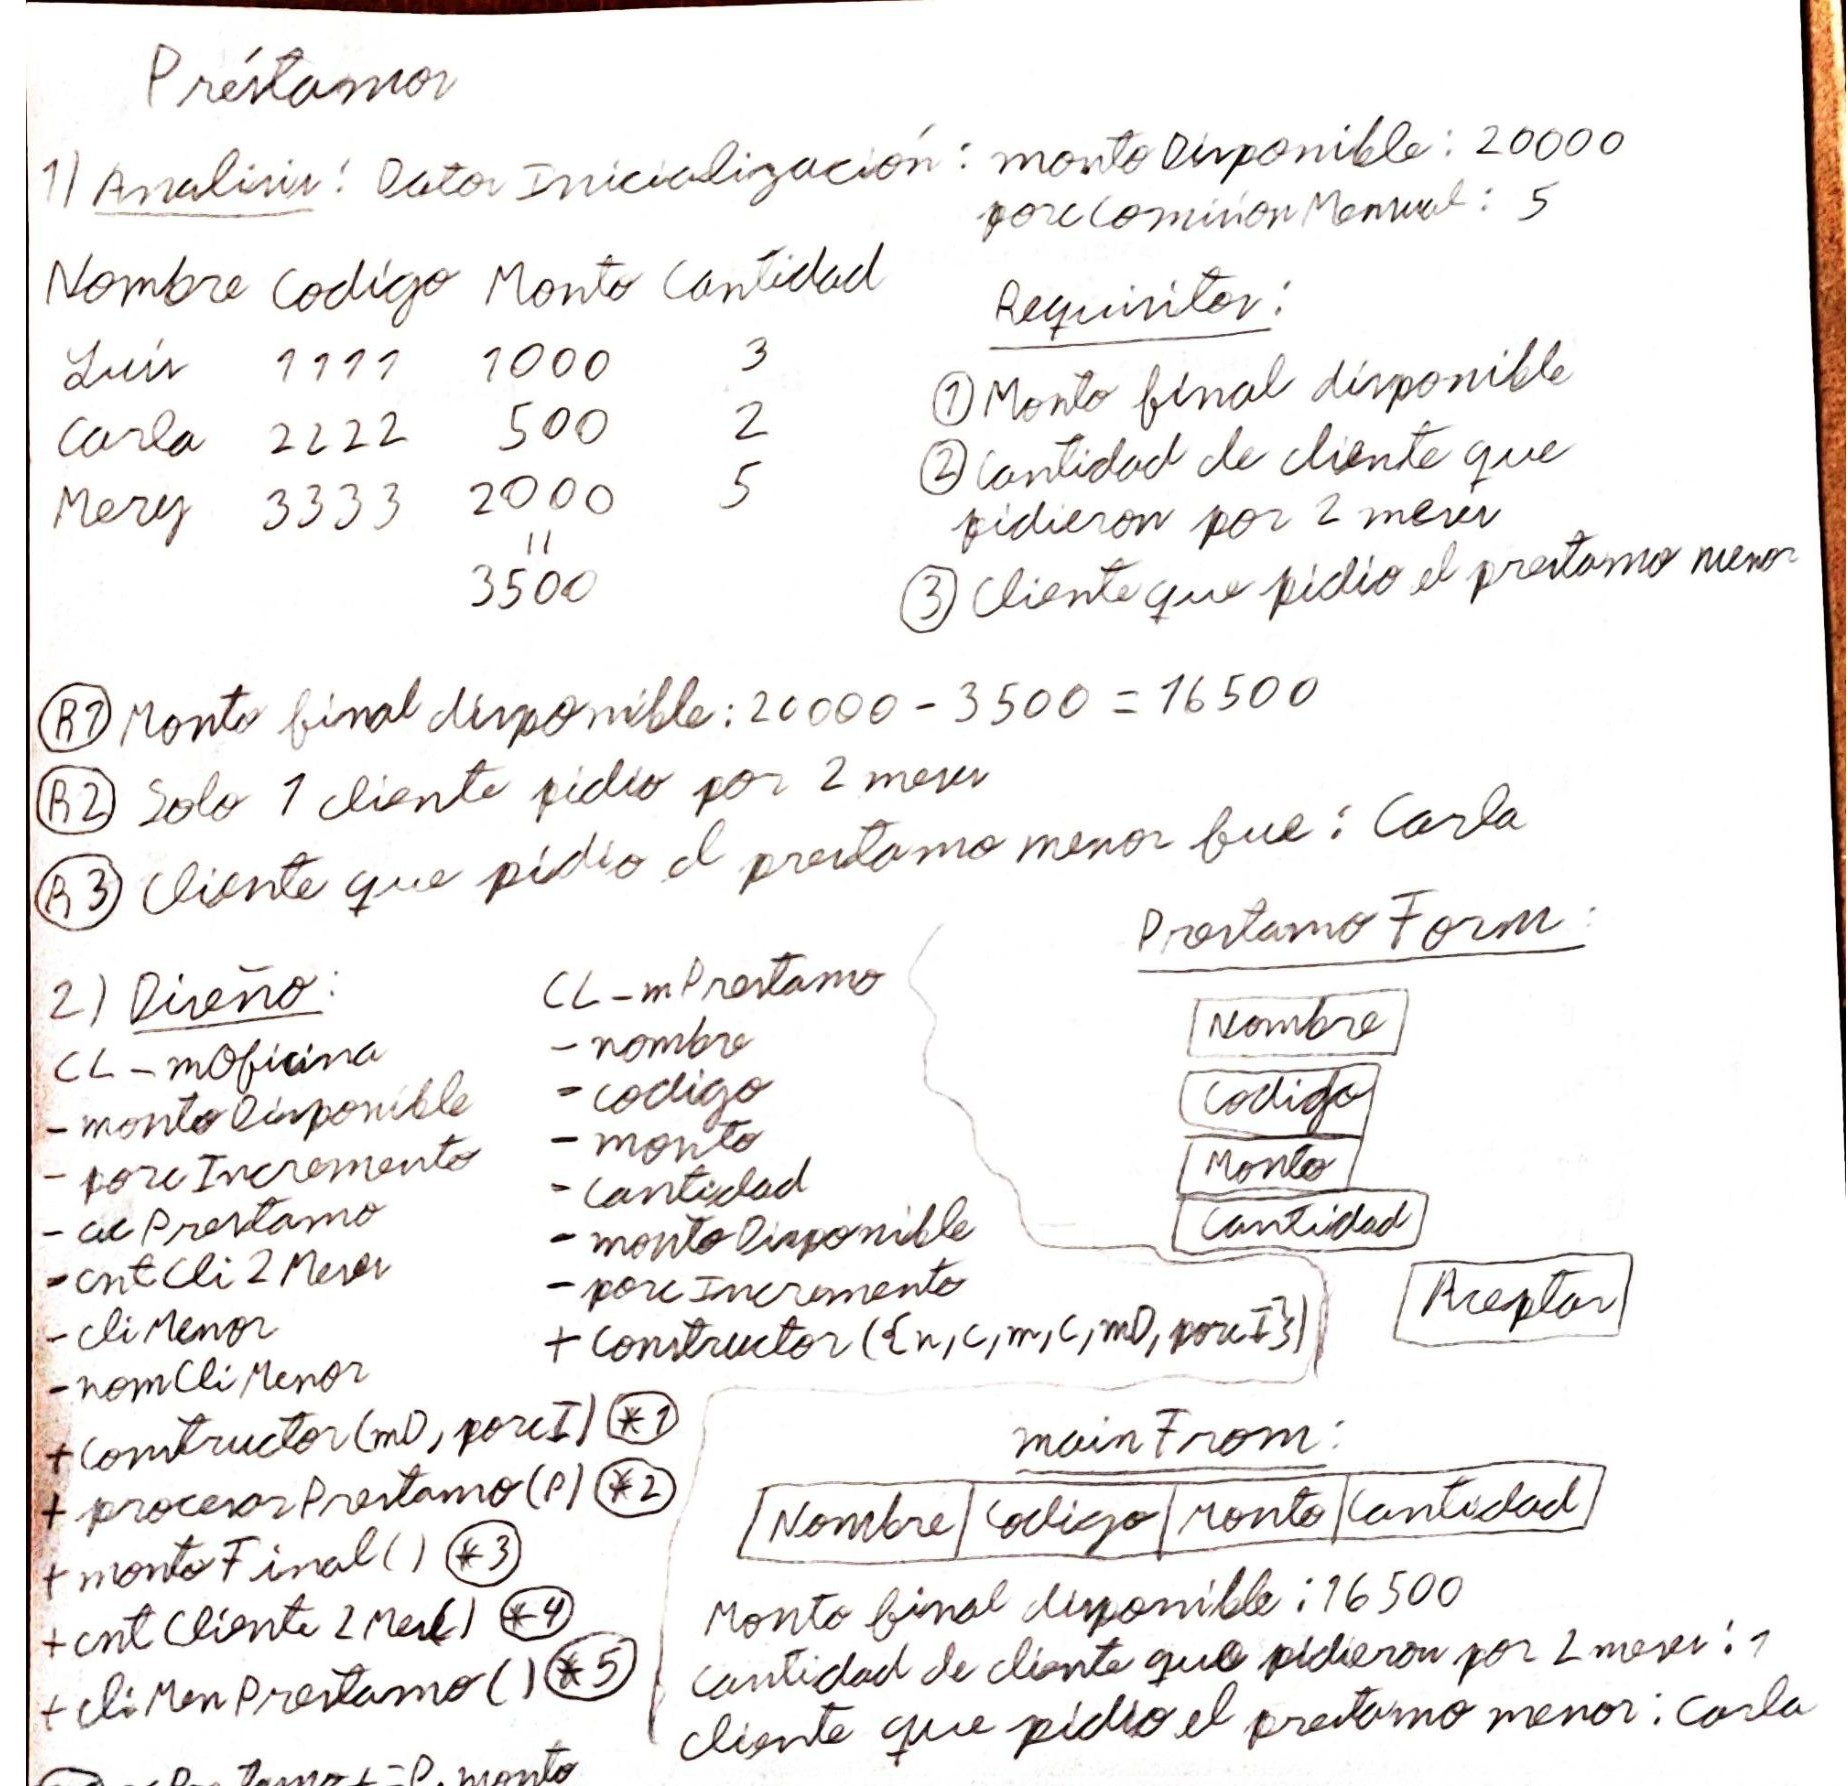 Préstamos
1) Analisis: Datos Inicialización: montoDisponible: 20000
porcComisionMensual: 5
Nombre Codigo Monto Cantidad
Luis 1111 1000 3
Carla 2222 500 2
Mery 3333 2000 5
"
3500
Requisitos:
① Monto final disponible
② Cantidad de cliente que
pidieron por 2 meses
③ Cliente que pidio el prestamo menor
R1 Monto final disponible: 20000 - 3500 = 16500
R2 Solo 1 cliente pidio por 2 meses
R3 Cliente que pidio el prestamo menor fue: Carla
2) Diseño:
CL-mOficina
- montoDisponible
- porcIncremento
- acPrestamo
- cntCli2Meses
- cliMenor
- nomCliMenor
+ constructor(mD, porcI) *1
+ procesarPrestamo(P) *2
+ montoFinal() *3
+ cntCliente2Mes() *4
+ cliMenPrestamo() *5
CL-mPrestamo
- nombre
- codigo
- monto
- cantidad
- montoDisponible
- porcIncremento
+ constructor({n,c,m,c,mD,porcI})
PrestamoForm:
Nombre
Codigo
Monto
Cantidad
Aceptar
mainFrom:
Nombre Codigo Monto Cantidad
Monto final disponible: 16500
Cantidad de cliente que pidieron por 2 meses: 1
Cliente que pidio el prestamo menor: Carla
+=P.monto